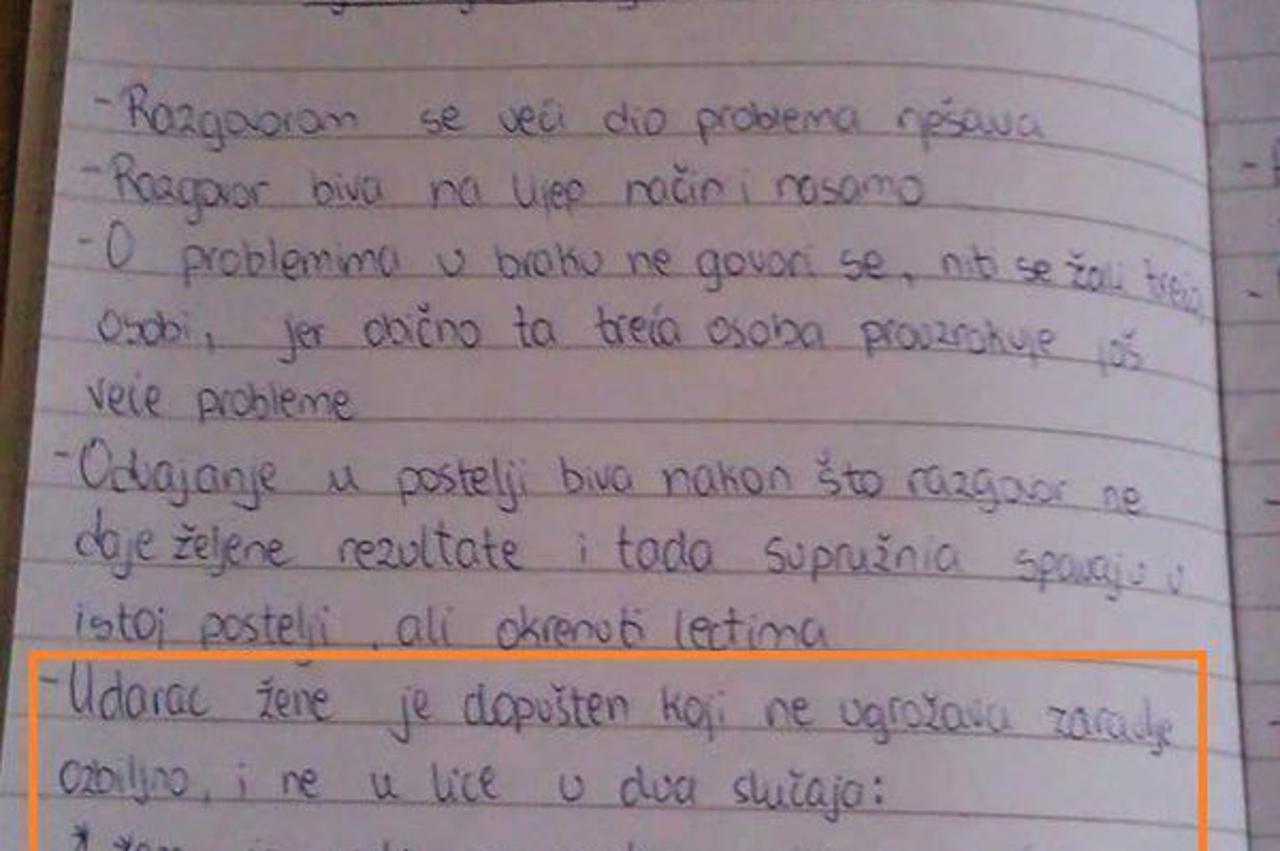 - Razgovorom se veći dio problema rješava
- Razgovor biva na lijep način i nasamo
- O problemima u braku ne govori se, niti se žali trećoj
osobi, jer obično ta treća osoba prouzrokuje još
veće probleme
- Odvajanje u postelji biva nakon što razgovor ne
daje željene rezultate i tada supružnia spavaju u
istoj postelji, ali okrenuti leđima
- Udarac žene je dopušten koji ne ugrožava zdravlje
ozbiljno, i ne u lice u dva slučaja: